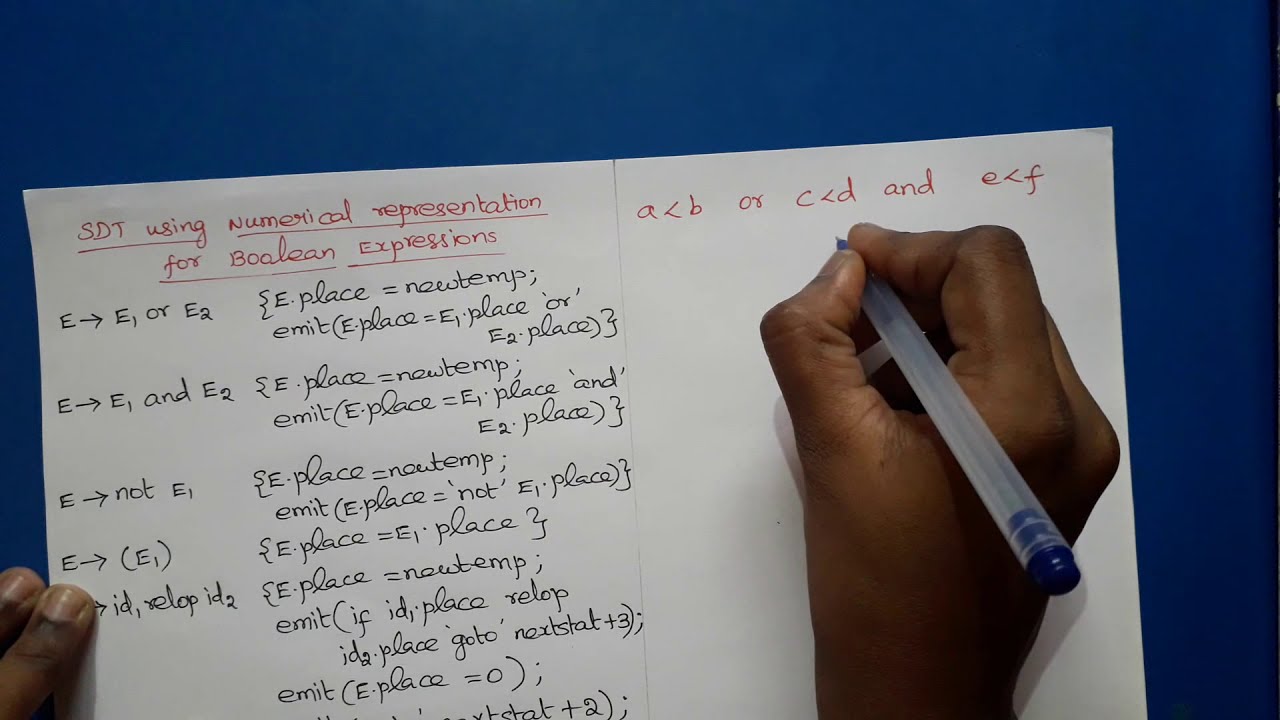 SDT using Numerical representation
for Boolean Expressions
E → E₁ or E₂ {E.place = newtemp;
emit(E.place = E₁.place 'or'
E₂.place)}
E → E₁ and E₂ {E.place = newtemp;
emit(E.place = E₁.place 'and'
E₂.place)}
E → not E₁ {E.place = newtemp;
emit(E.place = 'not' E₁.place)}
E → (E₁) {E.place = E₁.place }
→ id₁ relop id₂ {E.place = newtemp;
emit(if id₁.place relop
id₂.place 'goto' nextstat+3);
emit(E.place = 0);
nextstat + 2);
a < b or c < d and e < f